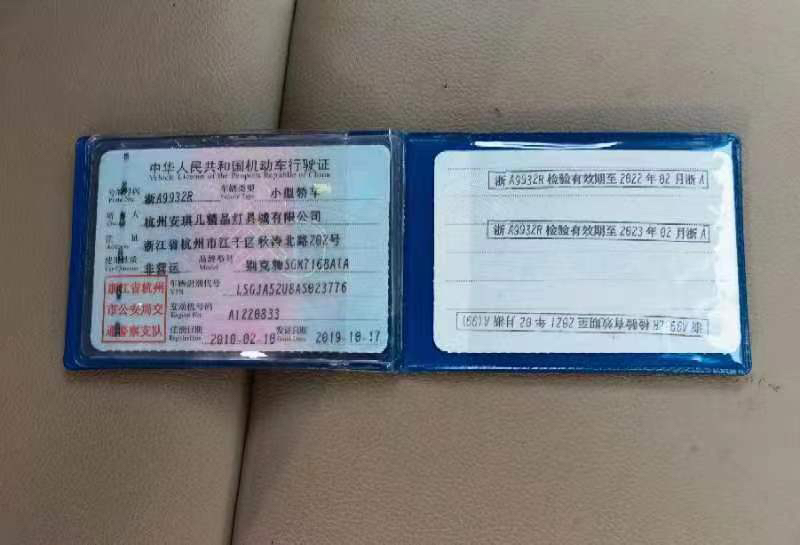 中华人民共和国机动车行驶证
Vehicle License of the People's Republic of China
号牌号码 浙A9932R 车辆类型 小型轿车
Plate No. Vehicle Type
所 人 杭州安琪儿精品灯具城有限公司
住 址 浙江省杭州市江干区秋涛北路202号
Address
使用性质 非营运 品牌型号 别克牌SGM7168ATA
Use Character Model
浙江省杭州
市公安局交
通警察支队
车辆识别代号 LSGJA52U8AS023776
VIN
发动机号码 A1220833
Engine No.
注册日期 2010-02-10 发证日期 2019-10-17
浙A9932R检验有效期至2022年02月浙A
浙A9932R检验有效期至2023年02月浙A
检验有效期至2021年02月浙A